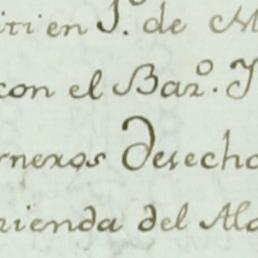 iti en S.º de M
con el Bazº. J
rnexos Derecho
rienda del Ala